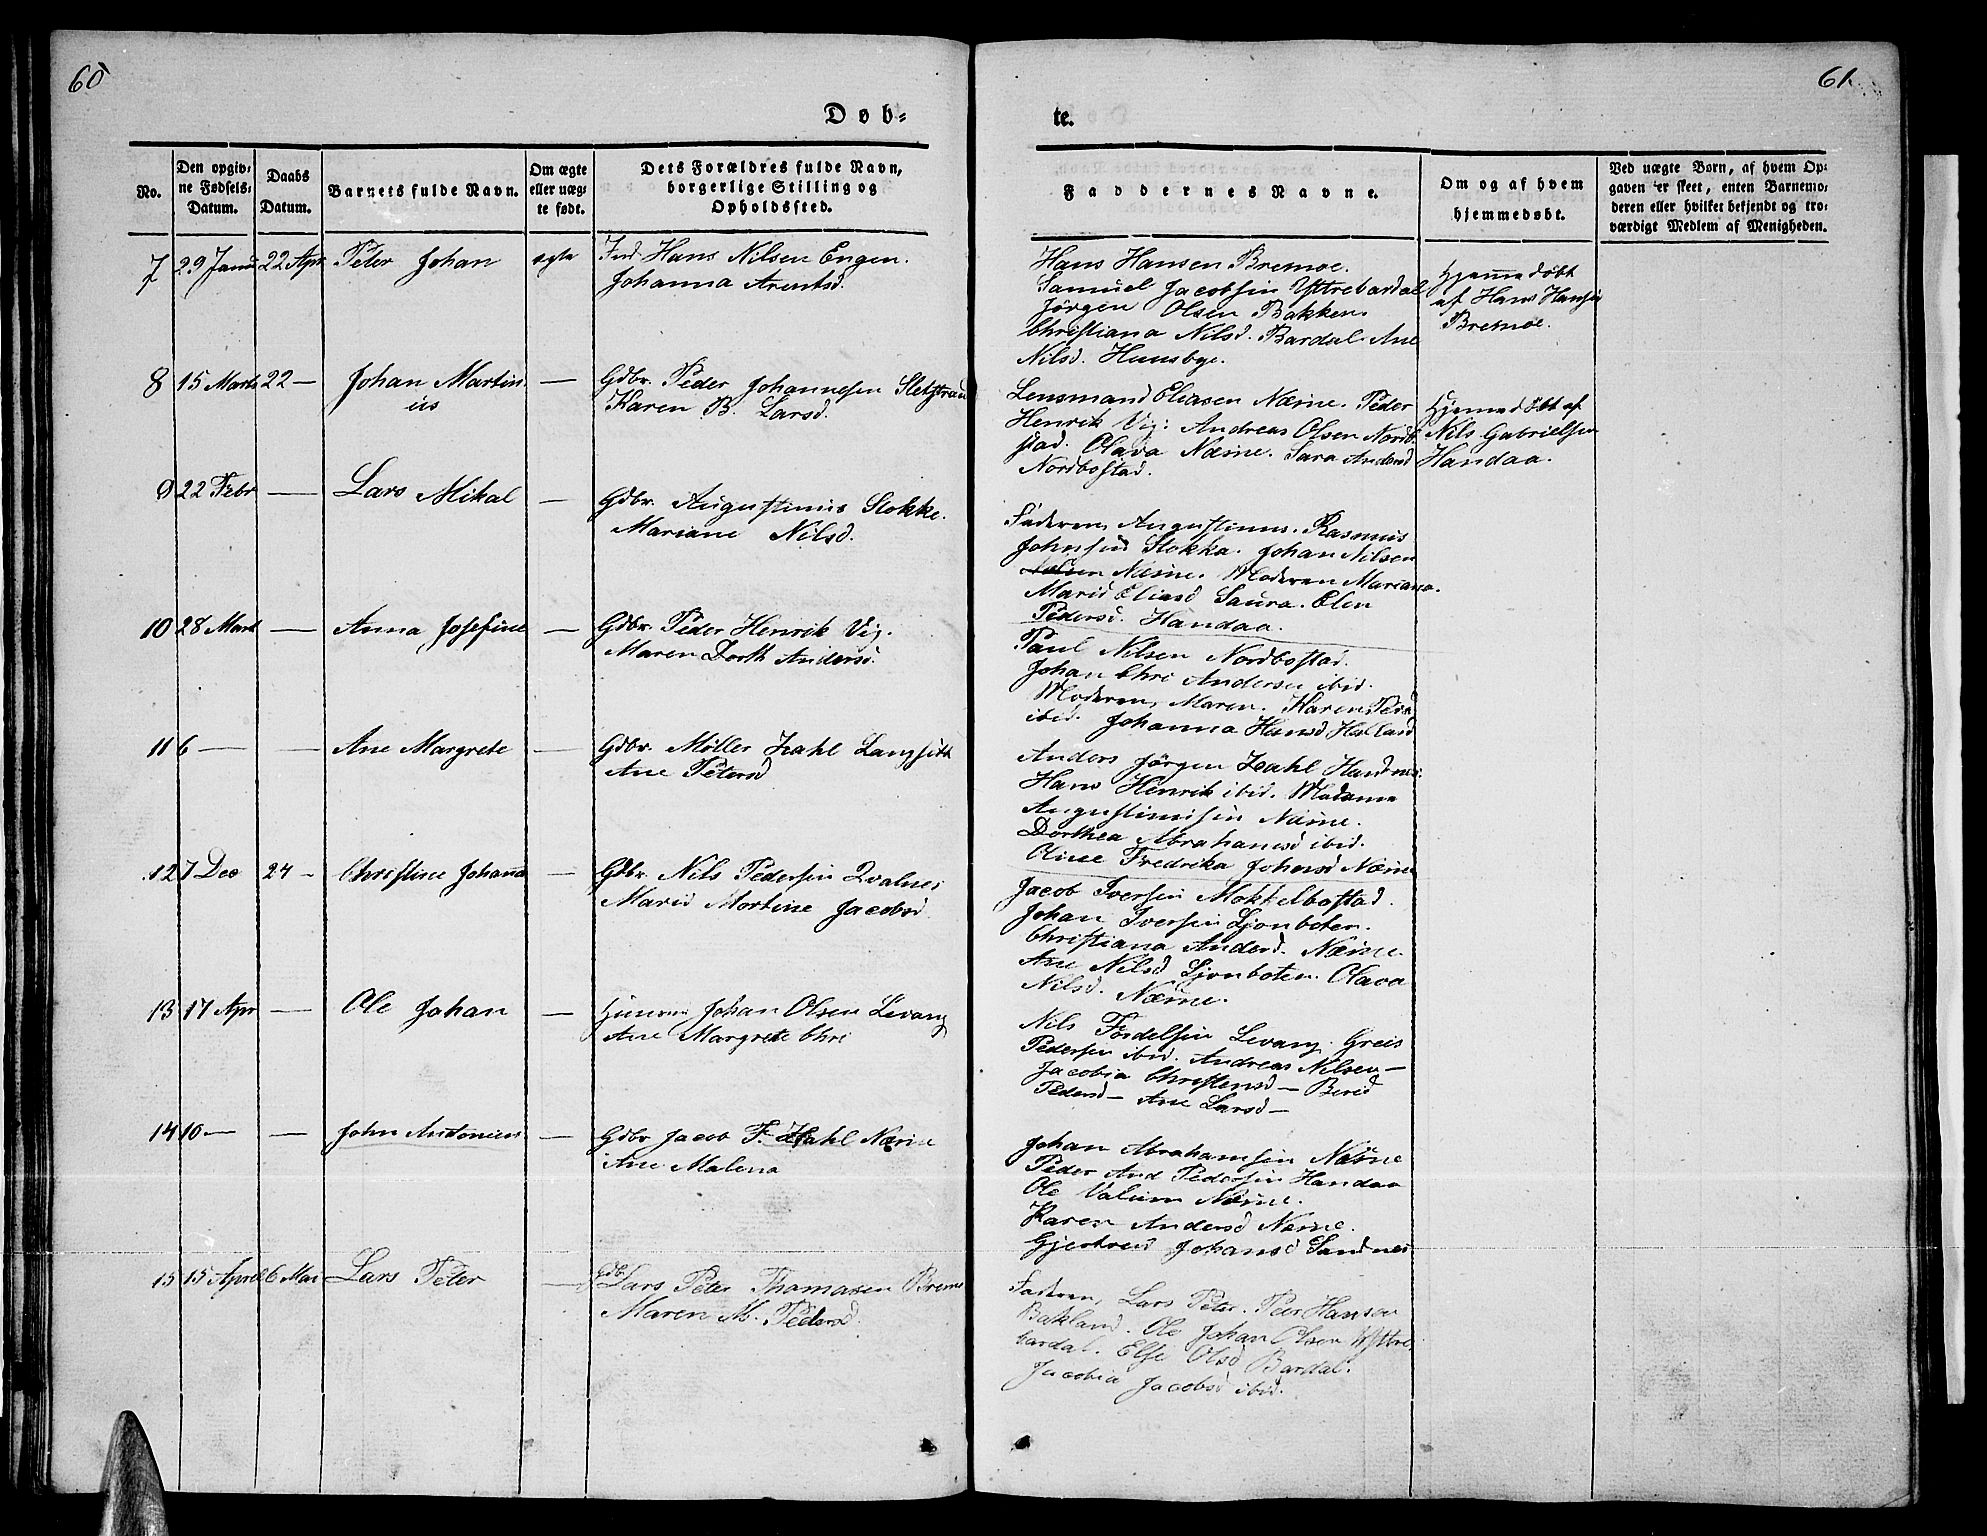 60
61
Døb-
te.
No.
Den opgiv-
ne Fødsels-
Datum.
Daabs
Datum.
Barnets fulde Navn.
Om ægte
eller uæg-
te født.
Dets Forældres fulde Navn,
borgerlige Stilling og
Opholdssted.
Faddernes Navne.
Om og af hvem
hjemmedøbt.
Ved uægte Børn, af hvem Op-
gaven er skeet, enten Barnemo-
deren eller hvilket bekjendt og tro-
værdigt Medlem af Menigheden.
7 29 Janu 22 Apr Peter Johan ægte Ind. Hans Nilsen Engen.
Johanna Arentsd.
Hans Hansen Bremoe.
Samuel Jacobsen Yttrebardal
Jörgen Olsen Bakken.
Christiana Nilsd. Bardal Ane
Nilsd. Huusbye.
Hjemmedöbt
af Hans Hansen
Bremoe.
8 15 Marts 22 — Johan Martin
us
— Gdbr. Peder Johannesen Sletstrand
Karen B. Larsd.
Lensmand Eliasen Næsne. Peder
Henrik Vig. Andreas Olsen Nordb.
stad. Olava Næsne. Sara Andersd
Nordbostad.
Hjemmedöbt af
Nils Gabrielsen
Handaa.
9 22 Febr — Lars Mikal — Gdbr. Augustinus Stokke.
Mariane Nilsd.
Faderen, Augustinus. Rasmus
Johnsen Stokka. Johan Nilsen
Næsne. Moderen Mariana.
Marid Eliasd Saura. Elen
Pedersd. Handaa.
10 28 Mart — Anna Josefine — Gdbr. Peder Henrik Vig.
Maren Dorth Andersd.
Paul Nilsen Nordbostad.
Johan Chri Andersen ibid.
Moderen, Maren. Karen Pedersd
ibid. Johanna Hansd Halland
11 6 — — Ane Margrete — Gdbr. Möller Zahl Langsett
Ane Petersd
Anders Jörgen Zahl Handnes.
Hans Henrik ibid. Madame
Augustinusen Næsne.
Dorthea Abrahamsd ibid.
Oline Fredrika Johansd Næsne
12 7 Dec 24 — Christine Johanna — Gdbr. Nils Pedersen Qvalnes
Marid Martine Jacobsd
Jacob Iversen Mokkelbostad.
Johan Iversen Ljonboten.
Christiana Andersd. Næsne.
Ane Nilsd Ljonboten. Olava
Nilsd. Næsne.
13 17 Apr — Ole Johan — Huusm Johan Olsen Levang
Ane Margrete Chri
Nils Fordelsen Levang. Greis
Pedersen ibid. Andreas Nilsen —
Jacobia Christensd — Berid
Pedersd — Ane Larsd —
14 10 — — John Antonius — Gdbr Jacob F. Zahl Næsne
Ane Malena
Johan Abrahamsen Næsne
Peder And Pedersen Handaa
Ole Valum Næsne.
Karen Andersd Næsne.
Gjertrud Johansd Sandnes
15 15 April 6 Mai Lars Peter — Gdbr Lars Peter Thomasen Bremo
Maren M. Pedersd.
Faderen, Lars Peter. Peer Hansen
Bakland. Ole Johan Olsen Yttre
bardal. Else Olsd Bardal.
Jacobia Jacobsd ibid.